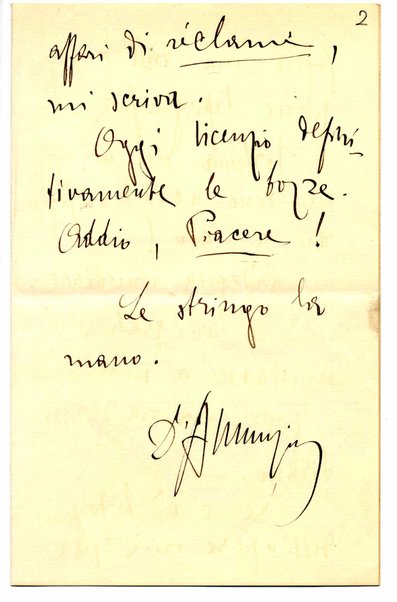 2
affari di réclame,
mi scriva.
Oggi licenzio defini-
tivamente le bozze.
Addio, Piacere!
Le stringo la
mano.
D'Annunzio